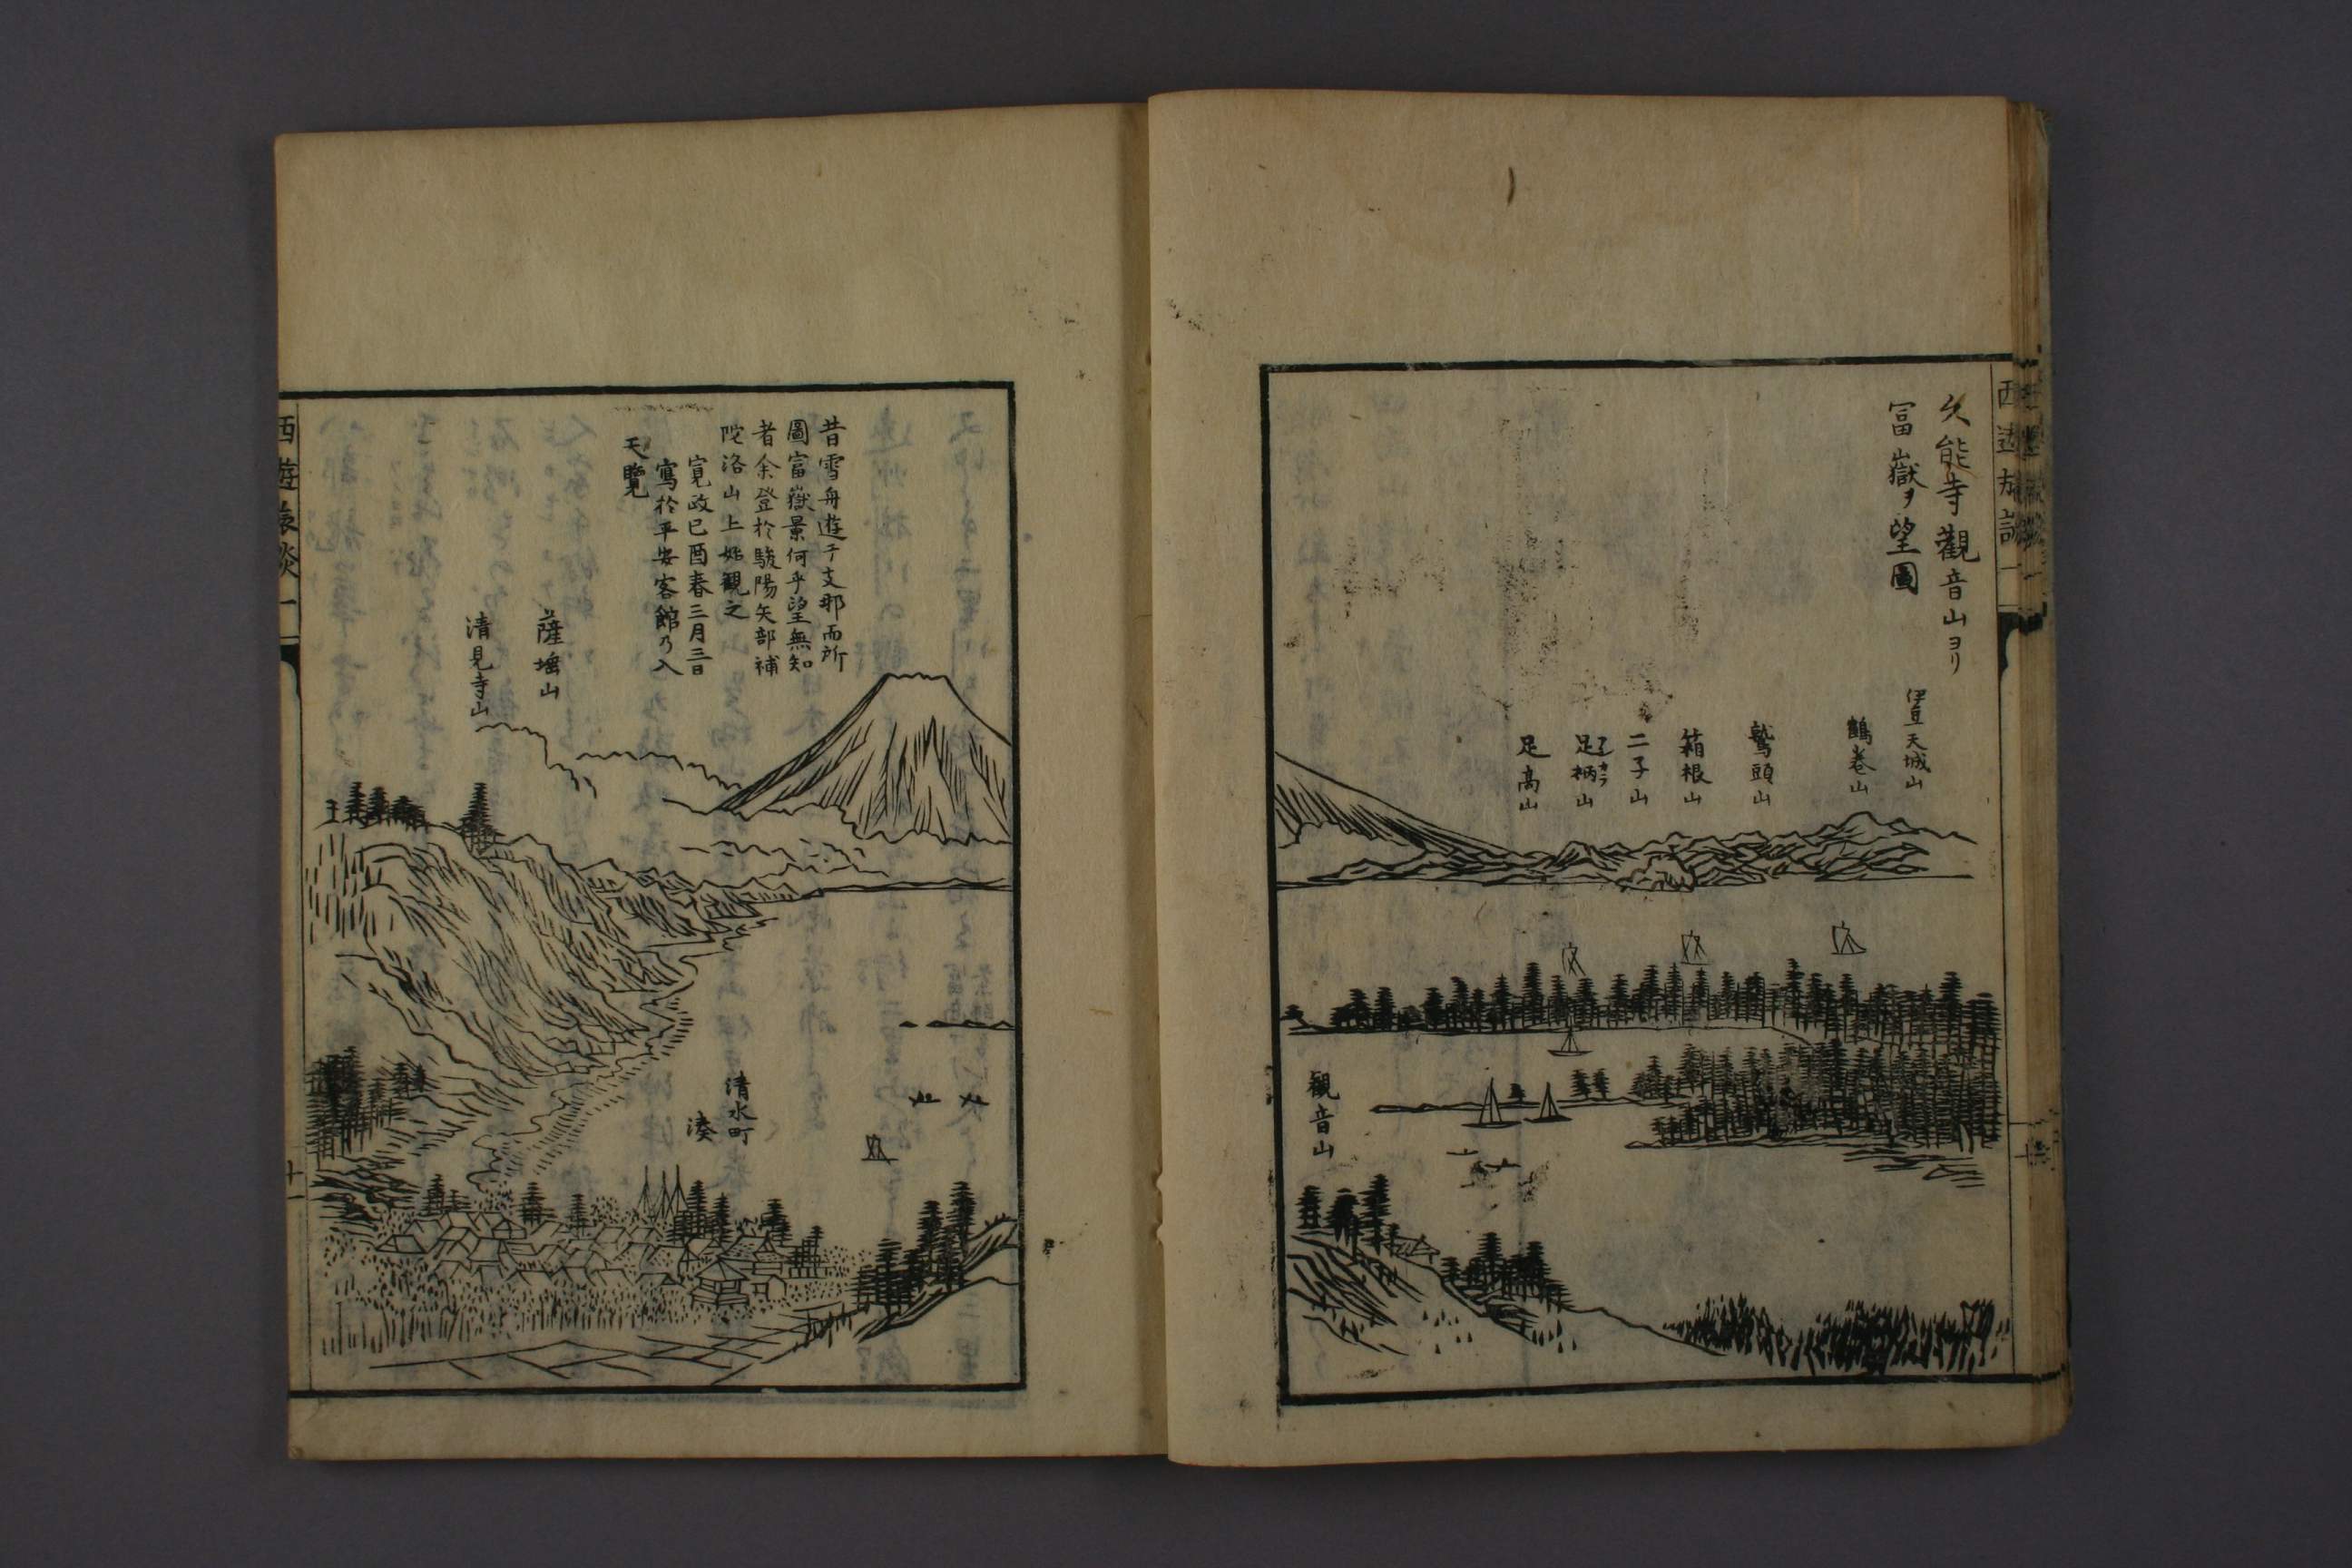 久能寺觀音山ヨリ
冨嶽ヲ望圖
伊豆天城山
鶴巻山
鷲頭山
箱根山
二子山
足柄山
足高山
観音山
昔雪舟遊于支那而所
圖富嶽景何乎望無知
者余登於駿陽矢部補
陀洛山上始觀之
寛政己酉春三月三日
寫於平安客館乃入
天覽
薩埵山
清見寺山
清水町
湊
西遊旅談一
十一